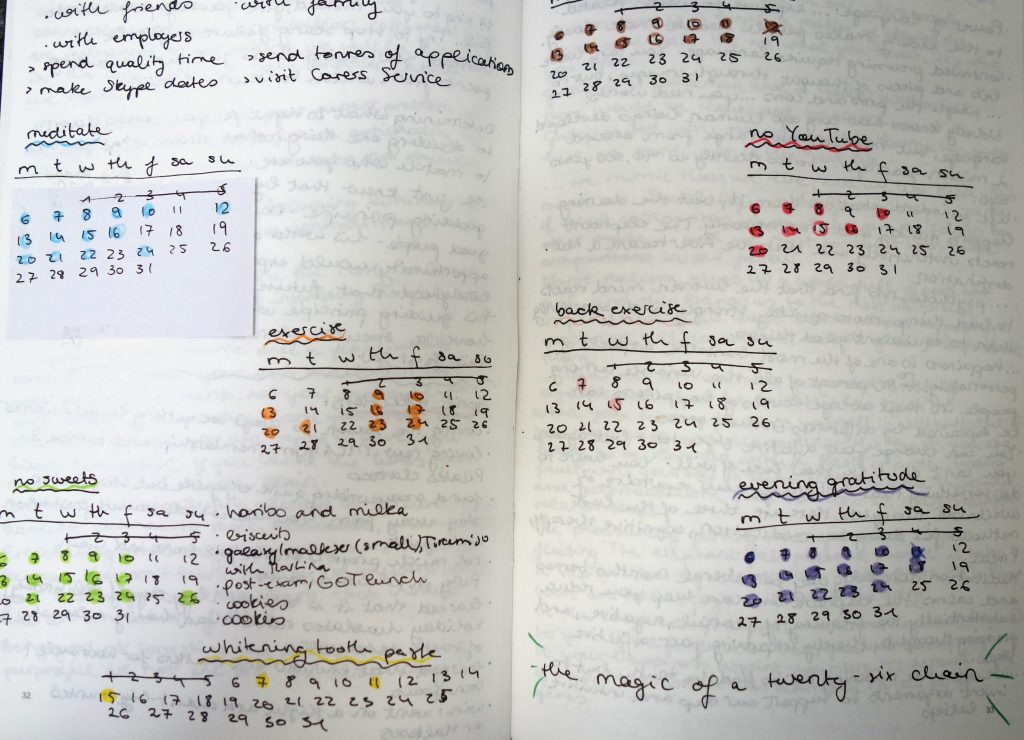 . with friends . with family
. with employers
> spend quality time > send tonnes of applications
> make Skype dates > visit Careers Service
meditate
m t w th f sa su
1 2 3 4 5
6 7 8 9 10 11 12
13 14 15 16 17 18 19
20 21 22 23 24 25 26
27 28 29 30 31
exercise
m t w th f sa su
1 2 3 4 5
6 7 8 9 10 11 12
13 14 15 16 17 18 19
20 21 22 23 24 25 26
27 28 29 30 31
no sweets
m t w th f sa su . haribo and milka
1 2 3 4 5 . biscuits
6 7 8 9 10 11 12 . galaxy/malteser (small), Tiramiso
with Martina
13 14 15 16 17 18 19 . post-exam, GOT lunch
20 21 22 23 24 25 26 . cookies
27 28 29 30 31 . cookies
whitening tooth paste
1 2 3 4 5 6 7 8 9 10 11 12 13 14
15 16 17 18 19 20 21 22 23 24 25
26 27 28 29 30 31
32
1 2 3 4 5
6 7 8 9 10 11 12
13 14 15 16 17 18 19
20 21 22 23 24 25 26
27 28 29 30 31
no YouTube
m t w th f sa su
1 2 3 4 5
6 7 8 9 10 11 12
13 14 15 16 17 18 19
20 21 22 23 24 25 26
27 28 29 30 31
back exercise
m t w th f sa su
1 2 3 4 5
6 7 8 9 10 11 12
13 14 15 16 17 18 19
20 21 22 23 24 25 26
27 28 29 30 31
evening gratitude
m t w th f sa su
1 2 3 4 5
6 7 8 9 10 11 12
13 14 15 16 17 18 19
20 21 22 23 24 25 26
27 28 29 30 31
the magic of a twenty-six chain
33